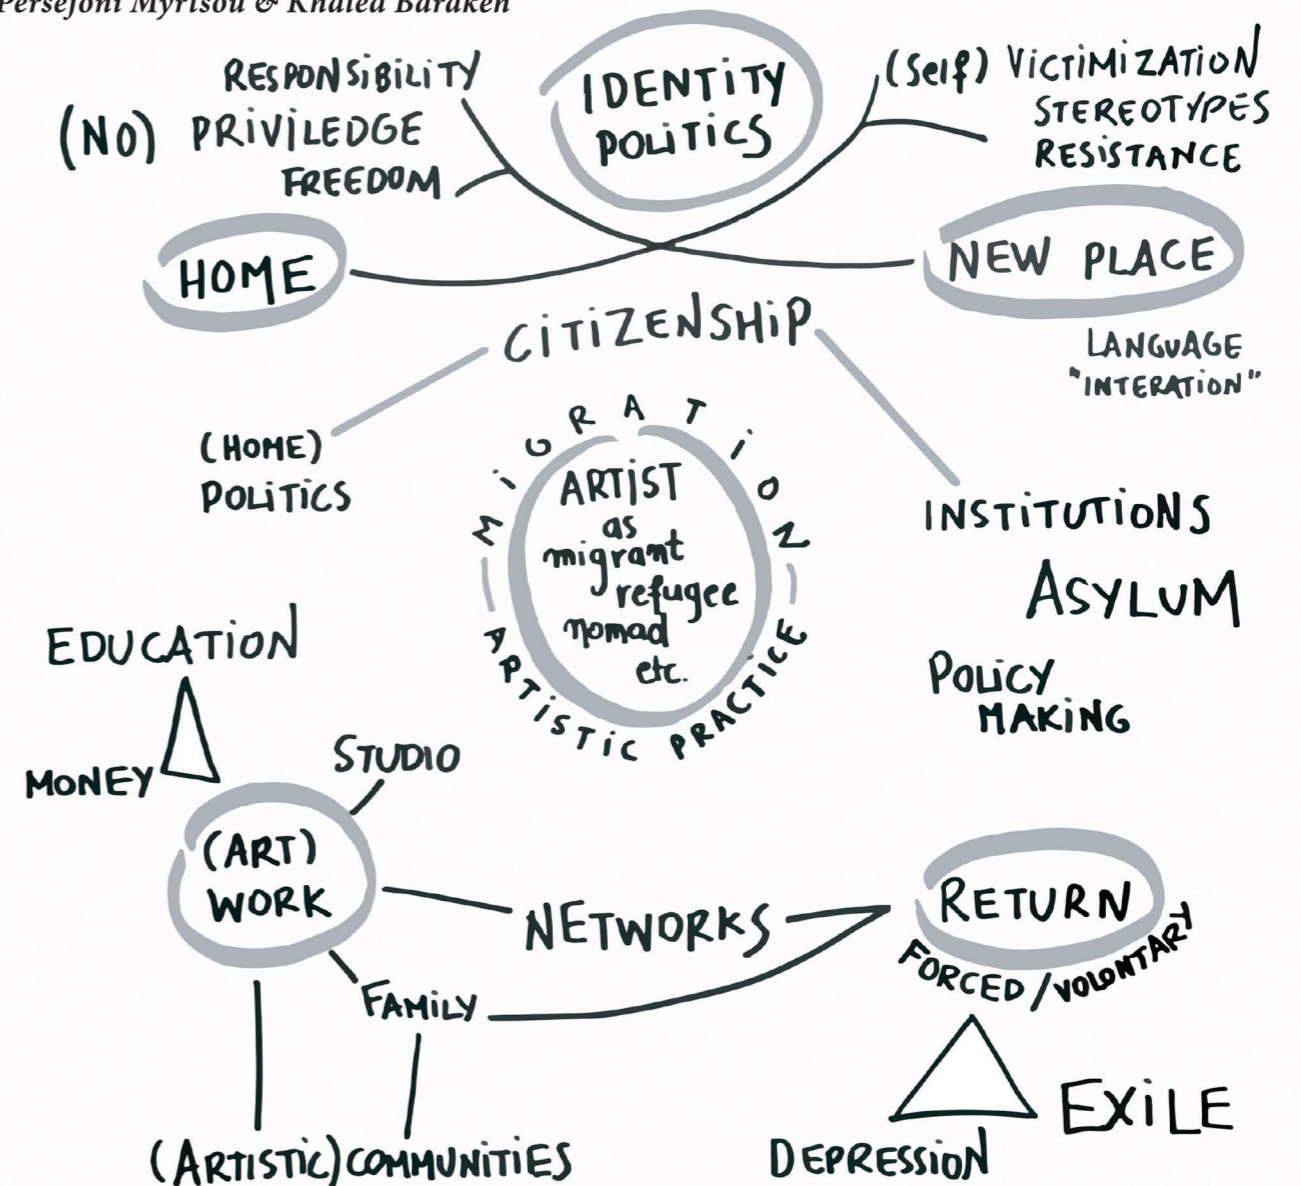 Persefoni Myrtsou & Khaled Barakeh
RESPONSiBiLiTY
(NO) PRiViLEDGE
FREEDOM
IDENTiTY
POLiTiCS
(Self) ViCTiMiZATiON
STEREOTYPES
RESiSTANCE
HOME
NEW PLACE
LANGUAGE
"INTERATiON"
CiTiZENSHiP
(HOME)
POLiTiCS
MiGRATiON
ARTiST
as
migrant
refugee
nomad
etc.
ARTiSTiC PRACTiCE
INSTiTUTiONS
ASYLUM
POLiCY
MAKiNG
EDUCATiON
MONEY
STUDIO
(ART)
WORK
NETWORKS
FAMiLY
(ARTiSTiC) COMMUNiTiES
RETURN
FORCED / VOLONTARY
EXiLE
DEPRESSiON